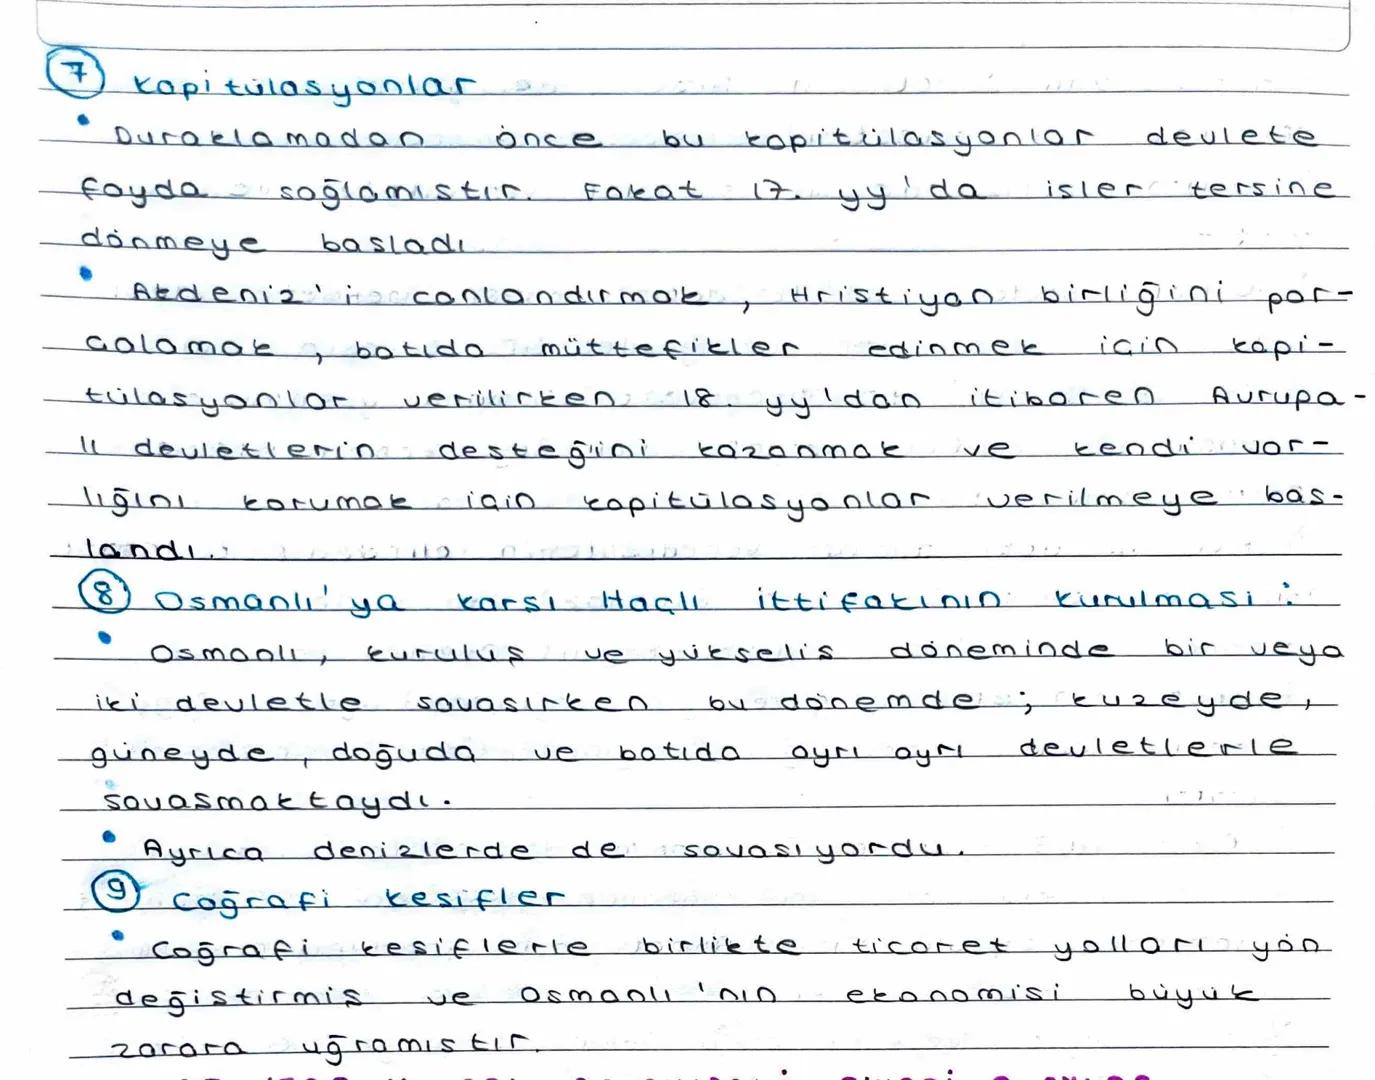 7 Kapitülasyonlar
• Duraklamadan önce bu kapitülasyonlar devlete
fayda sağlamıştır. Fakat 17. yy'da işler tersine
dönmeye başladı
• Akdeniz'i canlandırmak, Hristiyan birliğini par-
çalamak, batıda müttefikler edinmek için kapi-
tülasyonlar verilirken 18. yy'dan itibaren Avrupa-
lı devletlerin desteğini kazanmak ve kendi var-
lığını korumak için kapitülasyonlar verilmeye baş-
landı.
8 Osmanlı'ya karşı Haçlı ittifakının kurulması :
• Osmanlı, kuruluş ve yükseliş döneminde bir veya
iki devletle savaşırken bu dönemde ; kuzeyde,
güneyde, doğuda ve batıda ayrı ayrı devletlerle
savaşmaktaydı.
• Ayrıca denizlerde de savaşıyordu.
9 Coğrafi keşifler
• Coğrafi keşiflerle birlikte ticaret yolları yön
değiştirmiş ve Osmanlı'nın ekonomisi büyük
zarara uğramıştır.